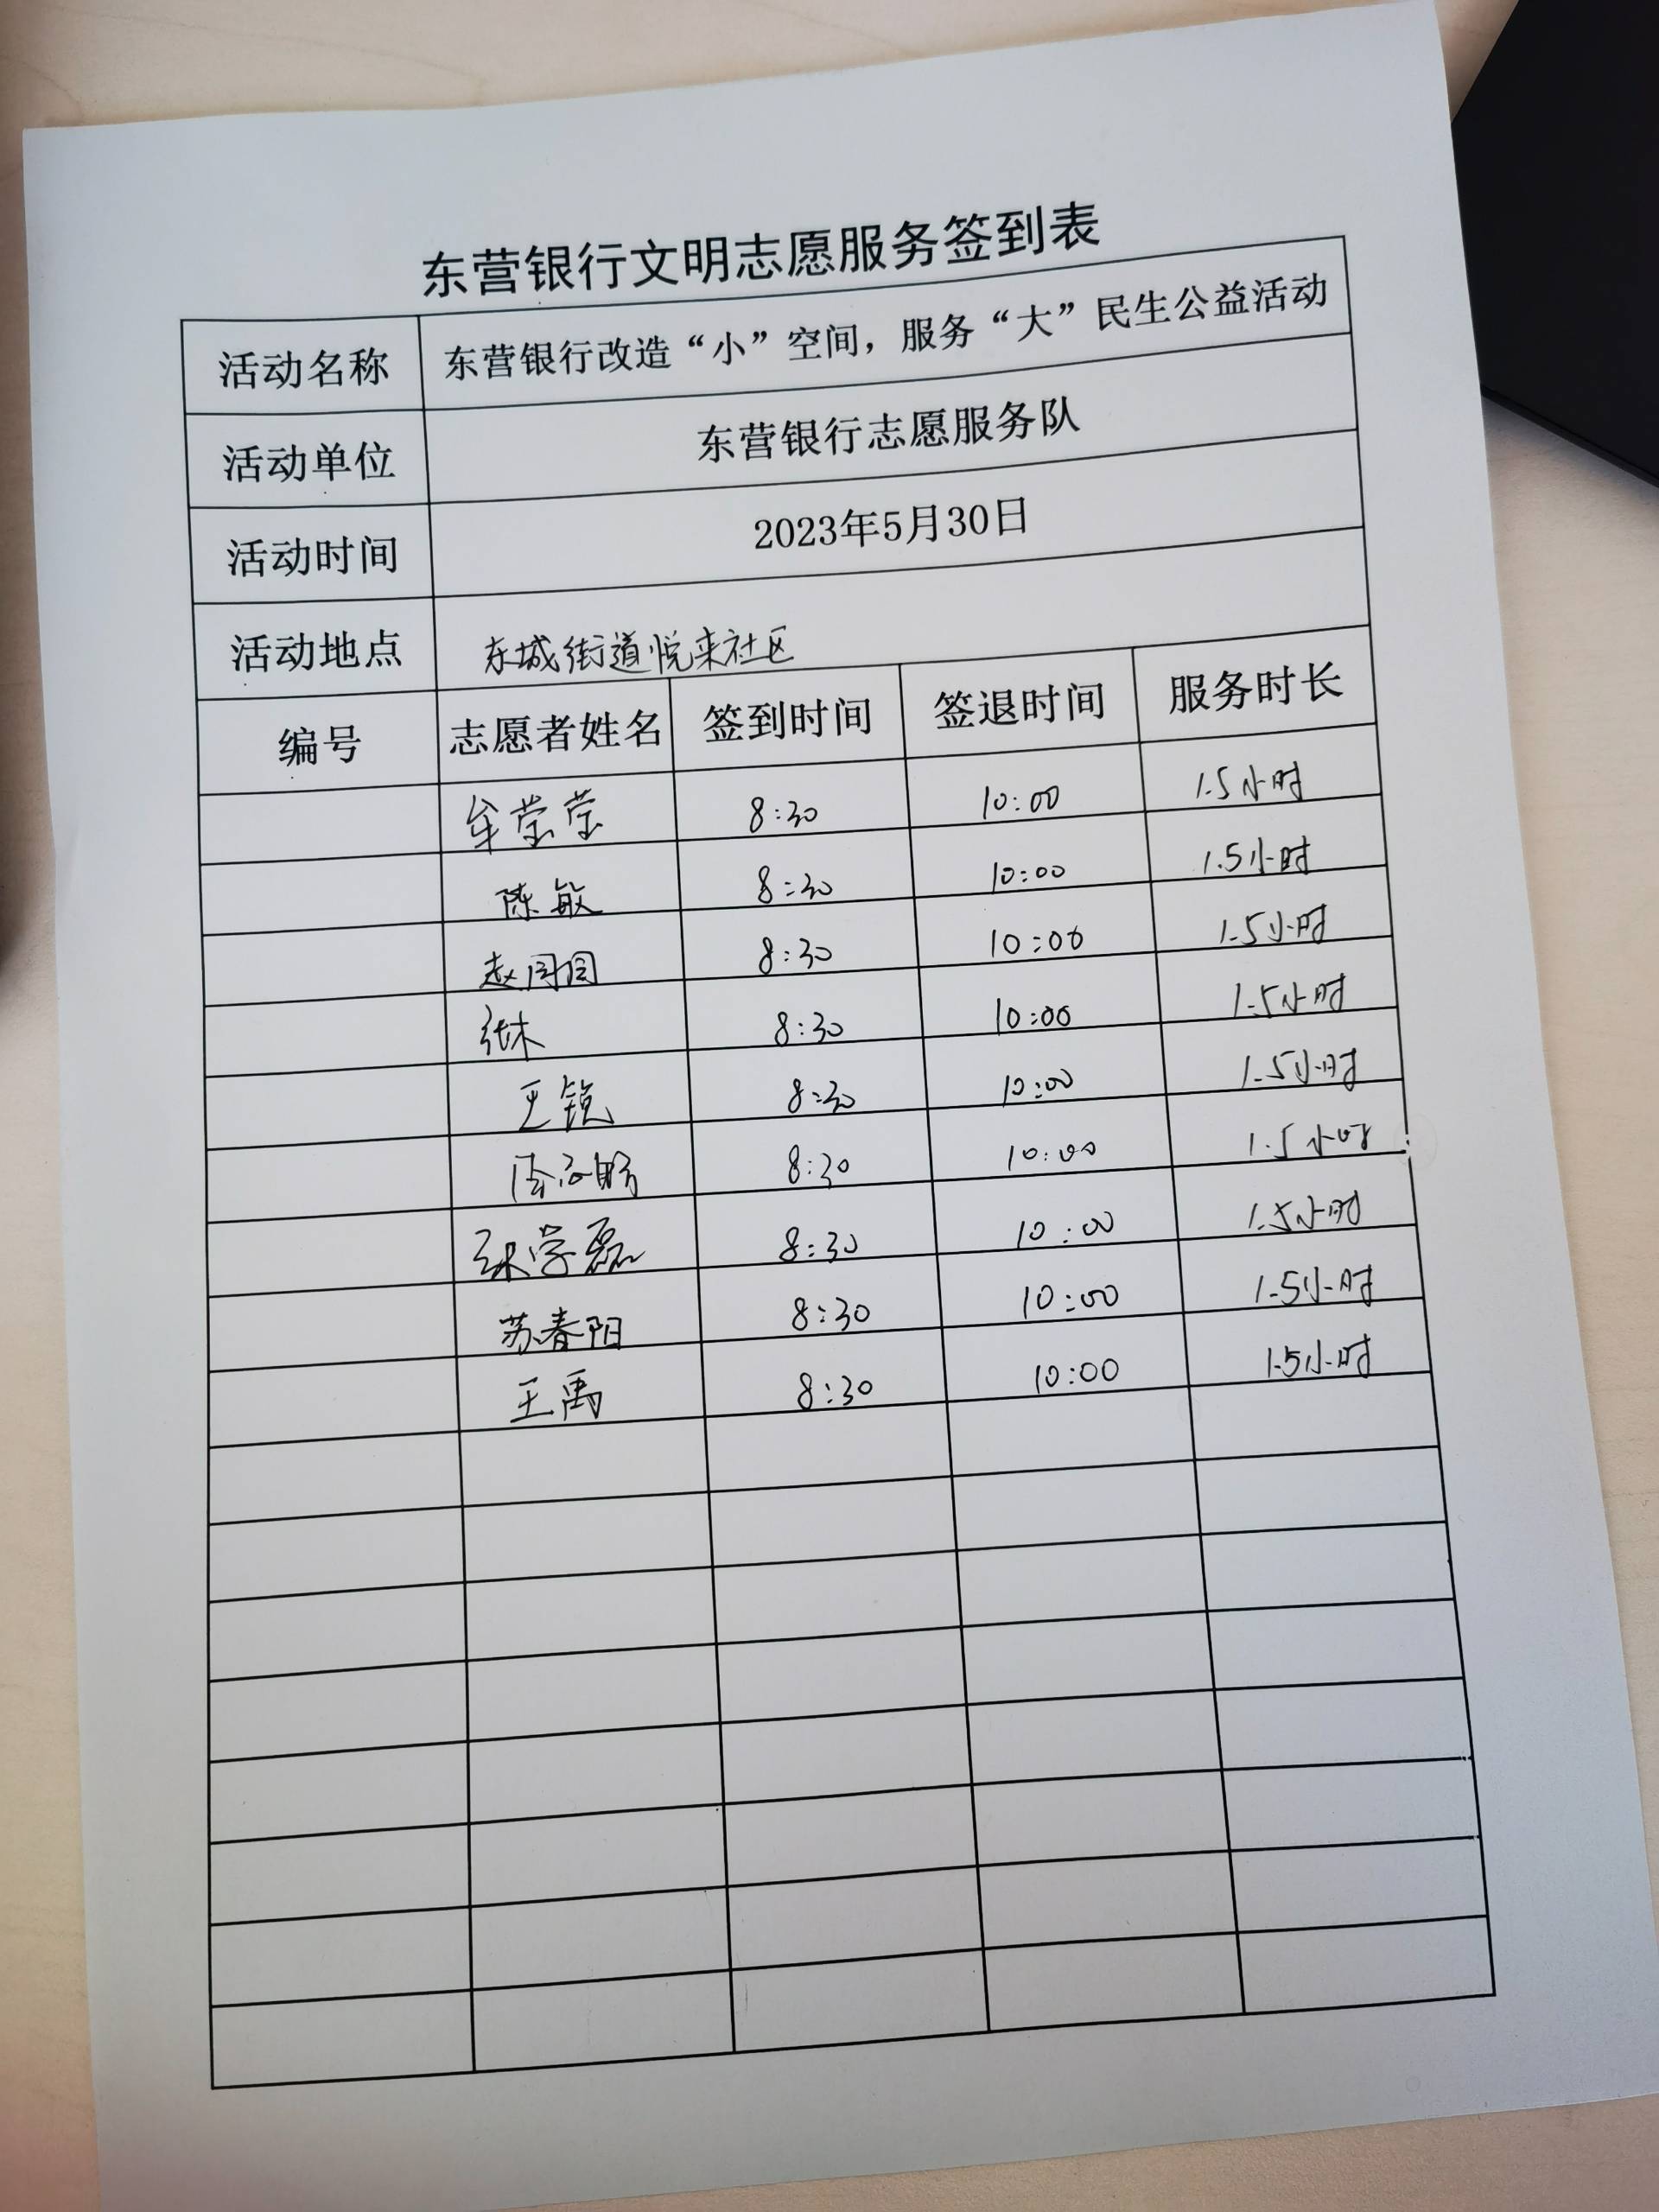 东营银行文明志愿服务签到表
活动名称 东营银行改造“小”空间，服务“大”民生公益活动
活动单位 东营银行志愿服务队
活动时间 2023年5月30日
活动地点 东城街道悦来社区
编号 志愿者姓名 签到时间 签退时间 服务时长
牟莹莹 8:30 10:00 1.5小时
陈敏 8:30 10:00 1.5小时
赵同同 8:30 10:00 1.5小时
张木 8:30 10:00 1.5小时
王锐 8:30 10:00 1.5小时
8:30 10:00 1.5小时
张学磊 8:30 10:00 1.5小时
苏春阳 8:30 10:00 1.5小时
王禹 8:30 10:00 1.5小时